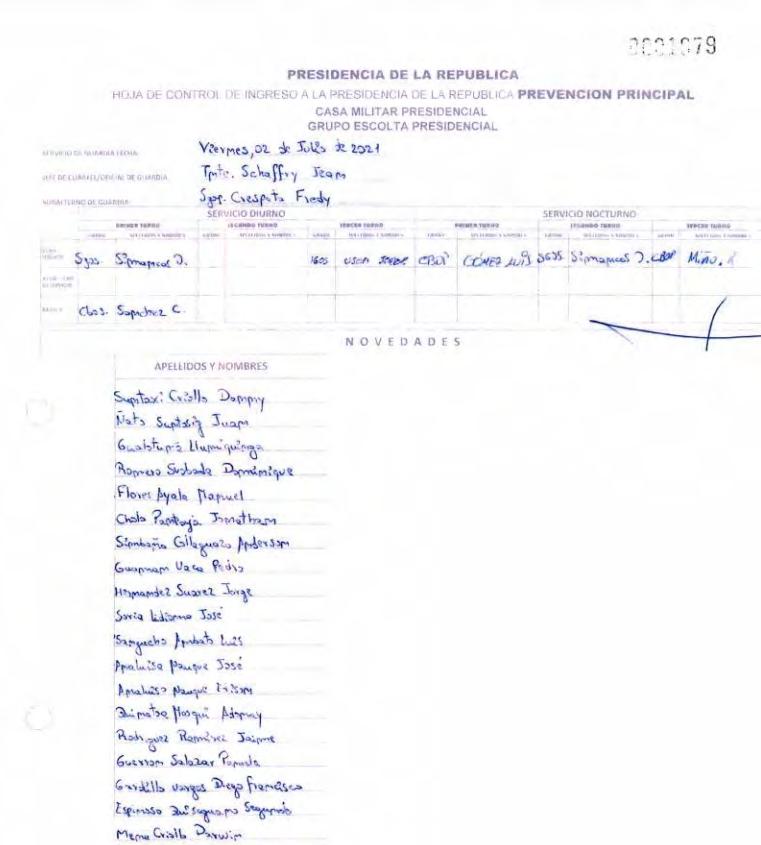 0001079
PRESIDENCIA DE LA REPUBLICA
HOJA DE CONTROL DE INGRESO A LA PRESIDENCIA DE LA REPUBLICA PREVENCION PRINCIPAL
CASA MILITAR PRESIDENCIAL
GRUPO ESCOLTA PRESIDENCIAL
SERVICIO DE GUARDIA FECHA: Viernes, 02 de Julio de 2021
JEFE DE CUARTEL/OFICIAL DE GUARDIA: Tnte. Schaffry Jean
SUBALTERNO DE GUARDIA: Sgop. Crespata Fredy
SERVICIO DIURNO SERVICIO NOCTURNO
PRIMER TURNO SEGUNDO TURNO TERCER TURNO PRIMER TURNO SEGUNDO TURNO TERCER TURNO
GRADO APELLIDOS Y NOMBRES GRADO APELLIDOS Y NOMBRES GRADO APELLIDOS Y NOMBRES GRADO APELLIDOS Y NOMBRES GRADO APELLIDOS Y NOMBRES GRADO APELLIDOS Y NOMBRES
Sgos. J. CBOP GÓMEZ LUIS SGOS J. CBOP Miño.
Cbos. Sanchez C.
NOVEDADES
APELLIDOS Y NOMBRES
Suntaxi Criollo Danny
Ñato Suntasig Juan
Llumiquinga
Romero Dominique
Flores Ayala Manuel
Chala Pantoja Jonathan
Simbaña Gilaguazo Anderson
Guannam Vaca Pedro
Hernandez Suarez Jorge
Soria José
Sangucho Ambato Luis
Analuisa José
Analuisa
Rodriguez Ramirez Jaime
Guerron Salazar
Gordillo Vargas Diego Francisco
Espinoso Segundo
Mena Criollo Darwin